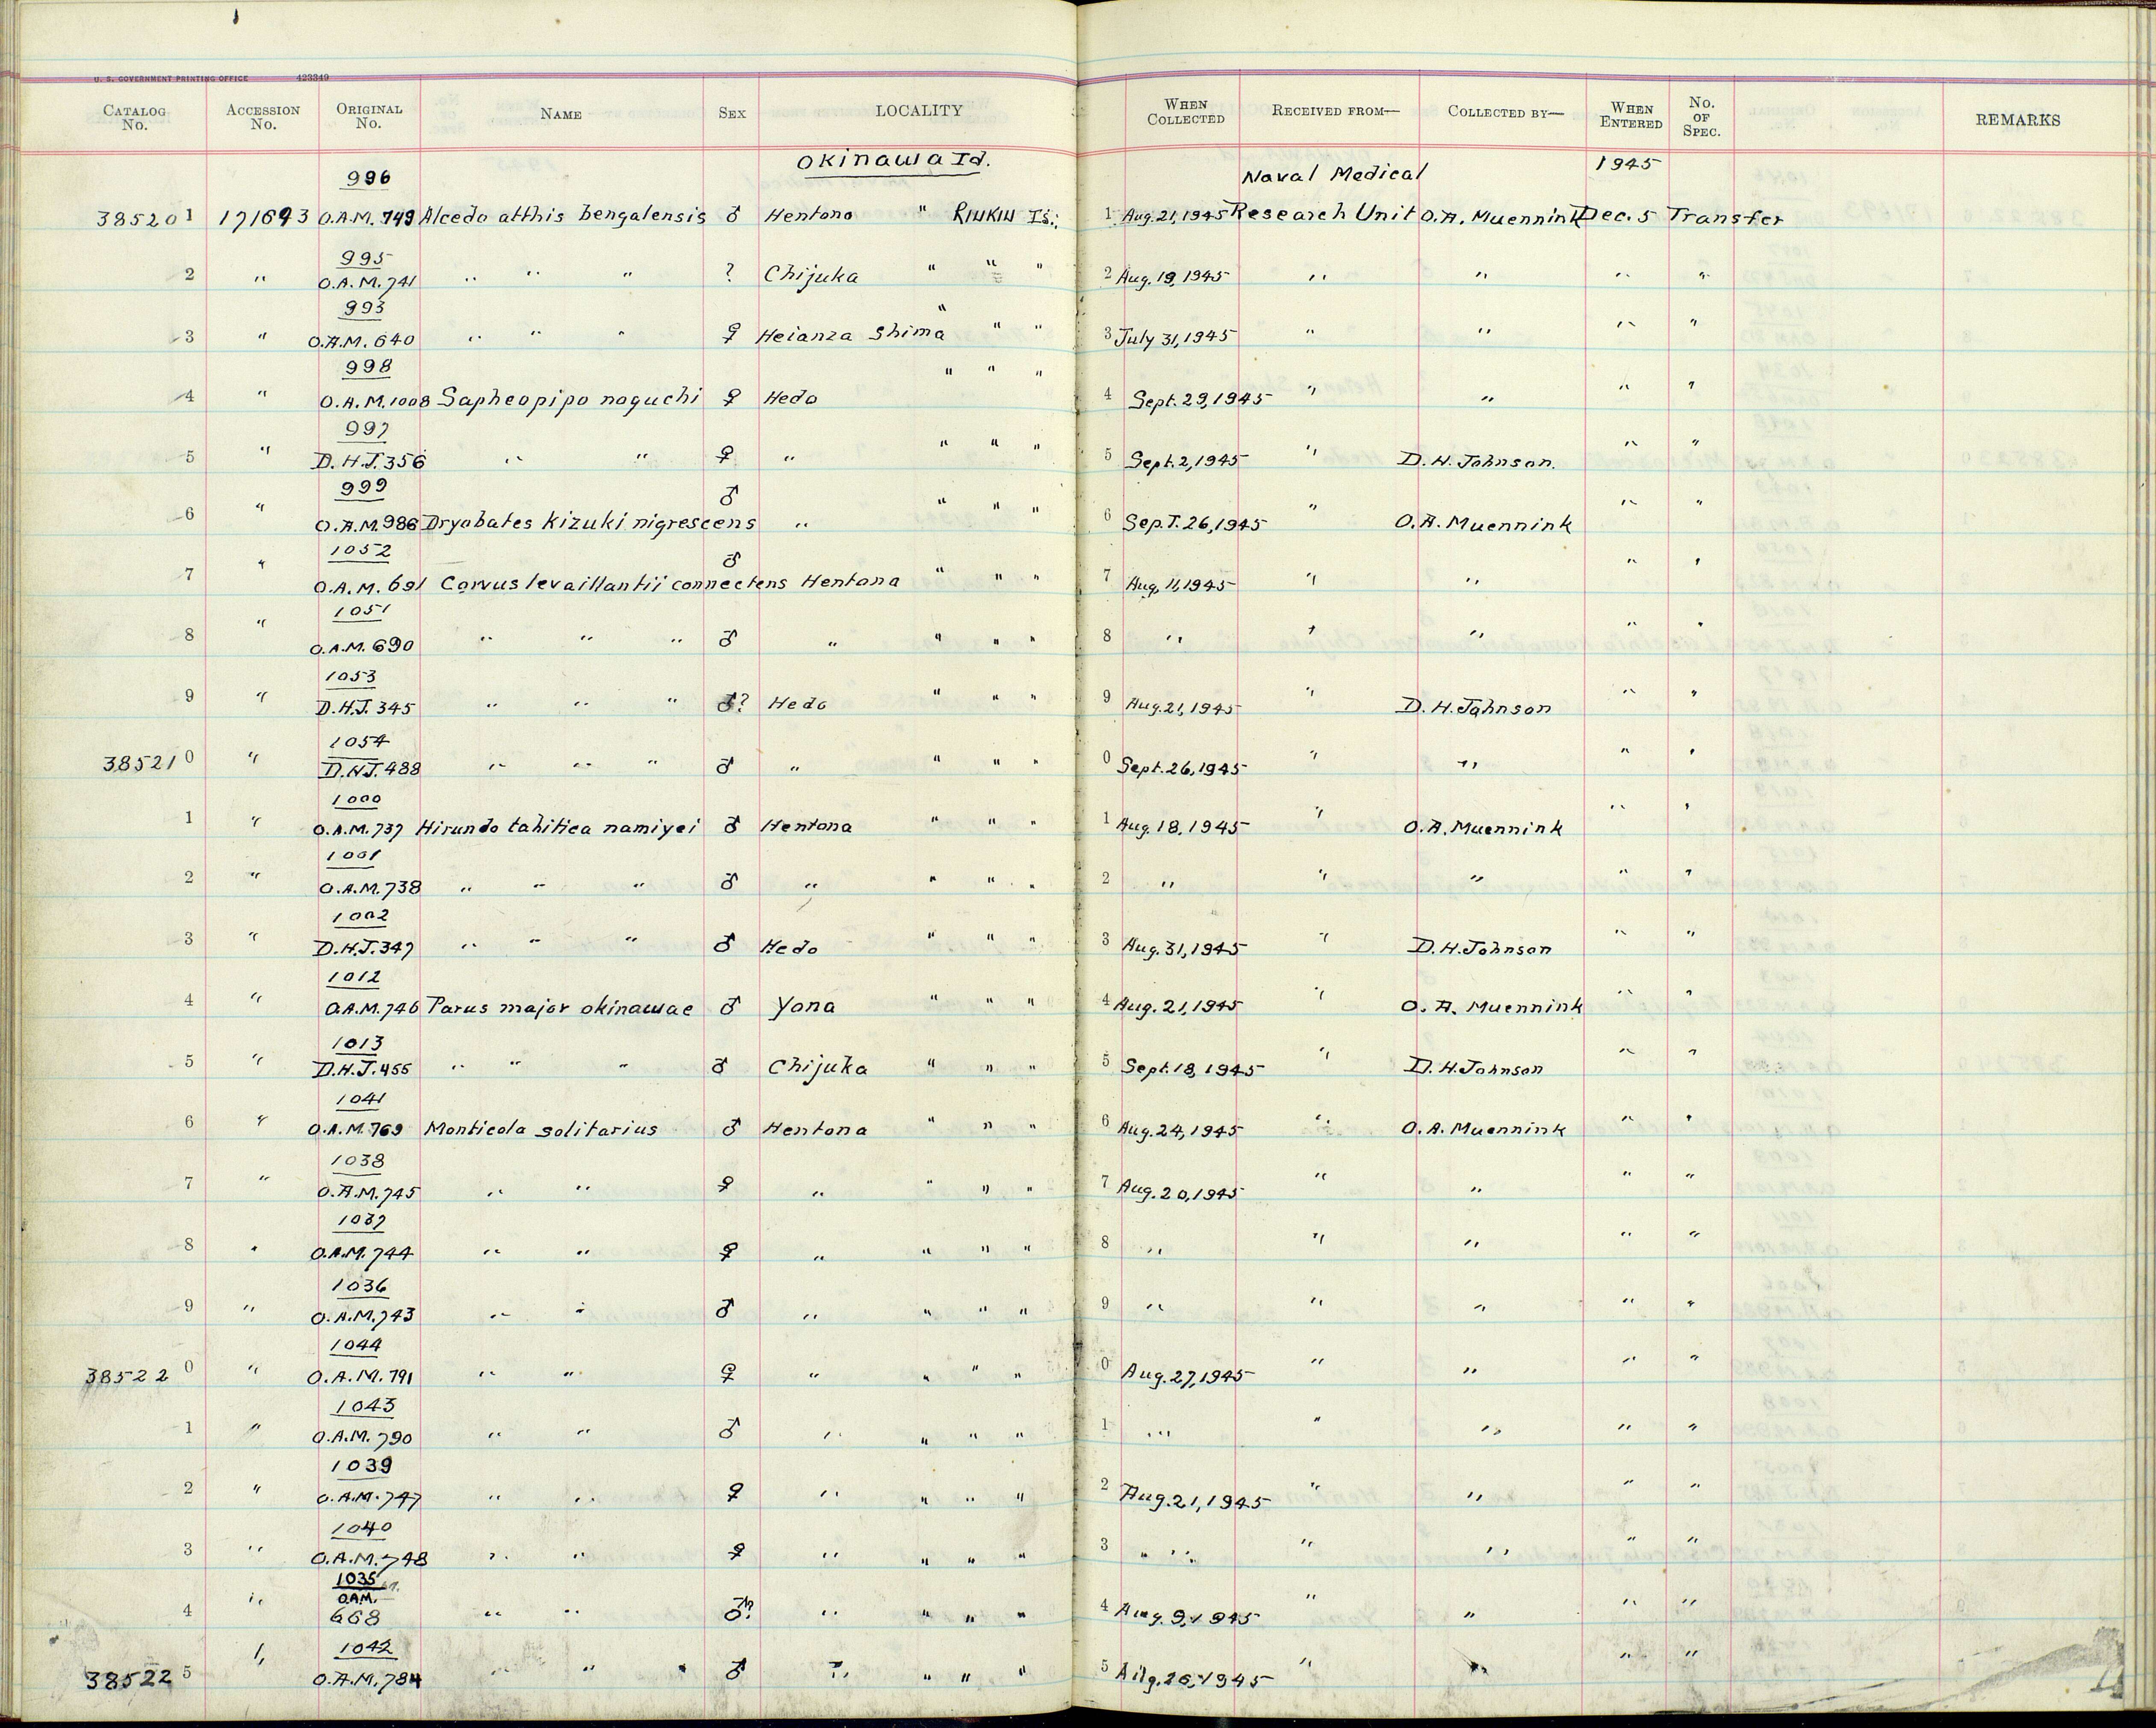 U. S. GOVERNMENT PRINTING OFFICE 423349
CATALOG No. ACCESSION No. ORIGINAL No. NAME SEX LOCALITY WHEN COLLECTED RECEIVED FROM— COLLECTED BY— WHEN ENTERED No. OF SPEC. REMARKS
Okinawa Id. 1945
996 Naval Medical
385201 171693 O.A.M. 749 Alcedo atthis bengalensis ♂ Hentona " RIUKIU Is; 1 Aug. 21, 1945 Research Unit O.A. Muennink Dec. 5 Transfer
995
2 " O.A.M. 741 " " " ? Chijuka " " " 2 Aug. 19, 1945 " " " "
993
3 " O.A.M. 640 " " " ♀ Heianza Shima " " " 3 July 31, 1945 " " " "
998
4 " O.A.M. 1008 Sapheopipo noguchi ♀ Hedo " " " 4 Sept. 29, 1945 " " " "
997
5 " D.H.J. 356 " " ♀ " " " " 5 Sept. 2, 1945 " D. H. Johnson. " "
999
6 " O.A.M. 986 Dryobates kizuki nigrescens ♂ " " " " 6 Sept. 26, 1945 " O.A. Muennink " "
1052
7 " O.A.M. 691 Corvus levaillantii connectens ♂ Hentona " " " 7 Aug. 11, 1945 " " " "
1051
8 " O.A.M. 690 " " " ♂ " " " " 8 " " " " "
1053
9 " D.H.J. 345 " " " ♂? Hedo " " " 9 Aug. 21, 1945 " D. H. Johnson " "
1054
385210 " D.H.J. 488 " " " ♂ " " " " 0 Sept. 26, 1945 " " " "
1000
1 " O.A.M. 737 Hirundo tahitica namiyei ♂ Hentona " " " 1 Aug. 18, 1945 " O.A. Muennink " "
1001
2 " O.A.M. 738 " " " ♂ " " " " 2 " " " " "
1002
3 " D.H.J. 347 " " " ♂ Hedo " " " 3 Aug. 31, 1945 " D.H. Johnson " "
1012
4 " O.A.M. 746 Parus major okinawae ♂ Yona " " " 4 Aug. 21, 1945 " O. A. Muennink " "
1013
5 " D.H.J. 455 " " " ♂ Chijuka " " " 5 Sept. 18, 1945 " D. H. Johnson " "
1041
6 " O.A.M. 769 Monticola solitarius ♂ Hentona " " " 6 Aug. 24, 1945 " O.A. Muennink " "
1038
7 " O.A.M. 745 " " ♀ " " " " 7 Aug. 20, 1945 " " " "
1037
8 " O.A.M. 744 " " ♀ " " " " 8 " " " " "
1036
9 " O.A.M. 743 " " ♂ " " " " 9 " " " " "
1044
385220 " O.A.M. 791 " " ♀ " " " " 0 Aug. 27, 1945 " " " "
1043
1 " O.A.M. 790 " " ♂ " " " " 1 " " " " "
1039
2 " O.A.M. 747 " " ♀ " " " " 2 Aug. 21, 1945 " " " "
1040
3 " O.A.M. 748 " " ♀ " " " " 3 " " " " " "
1035
O.A.M.
4 " 668 " " ♂? " " " " 4 Aug. 9, 1945 " " " "
1042
385225 " O.A.M. 784 " " " ♂ " " " " 5 Aug. 26, 1945 " " " "